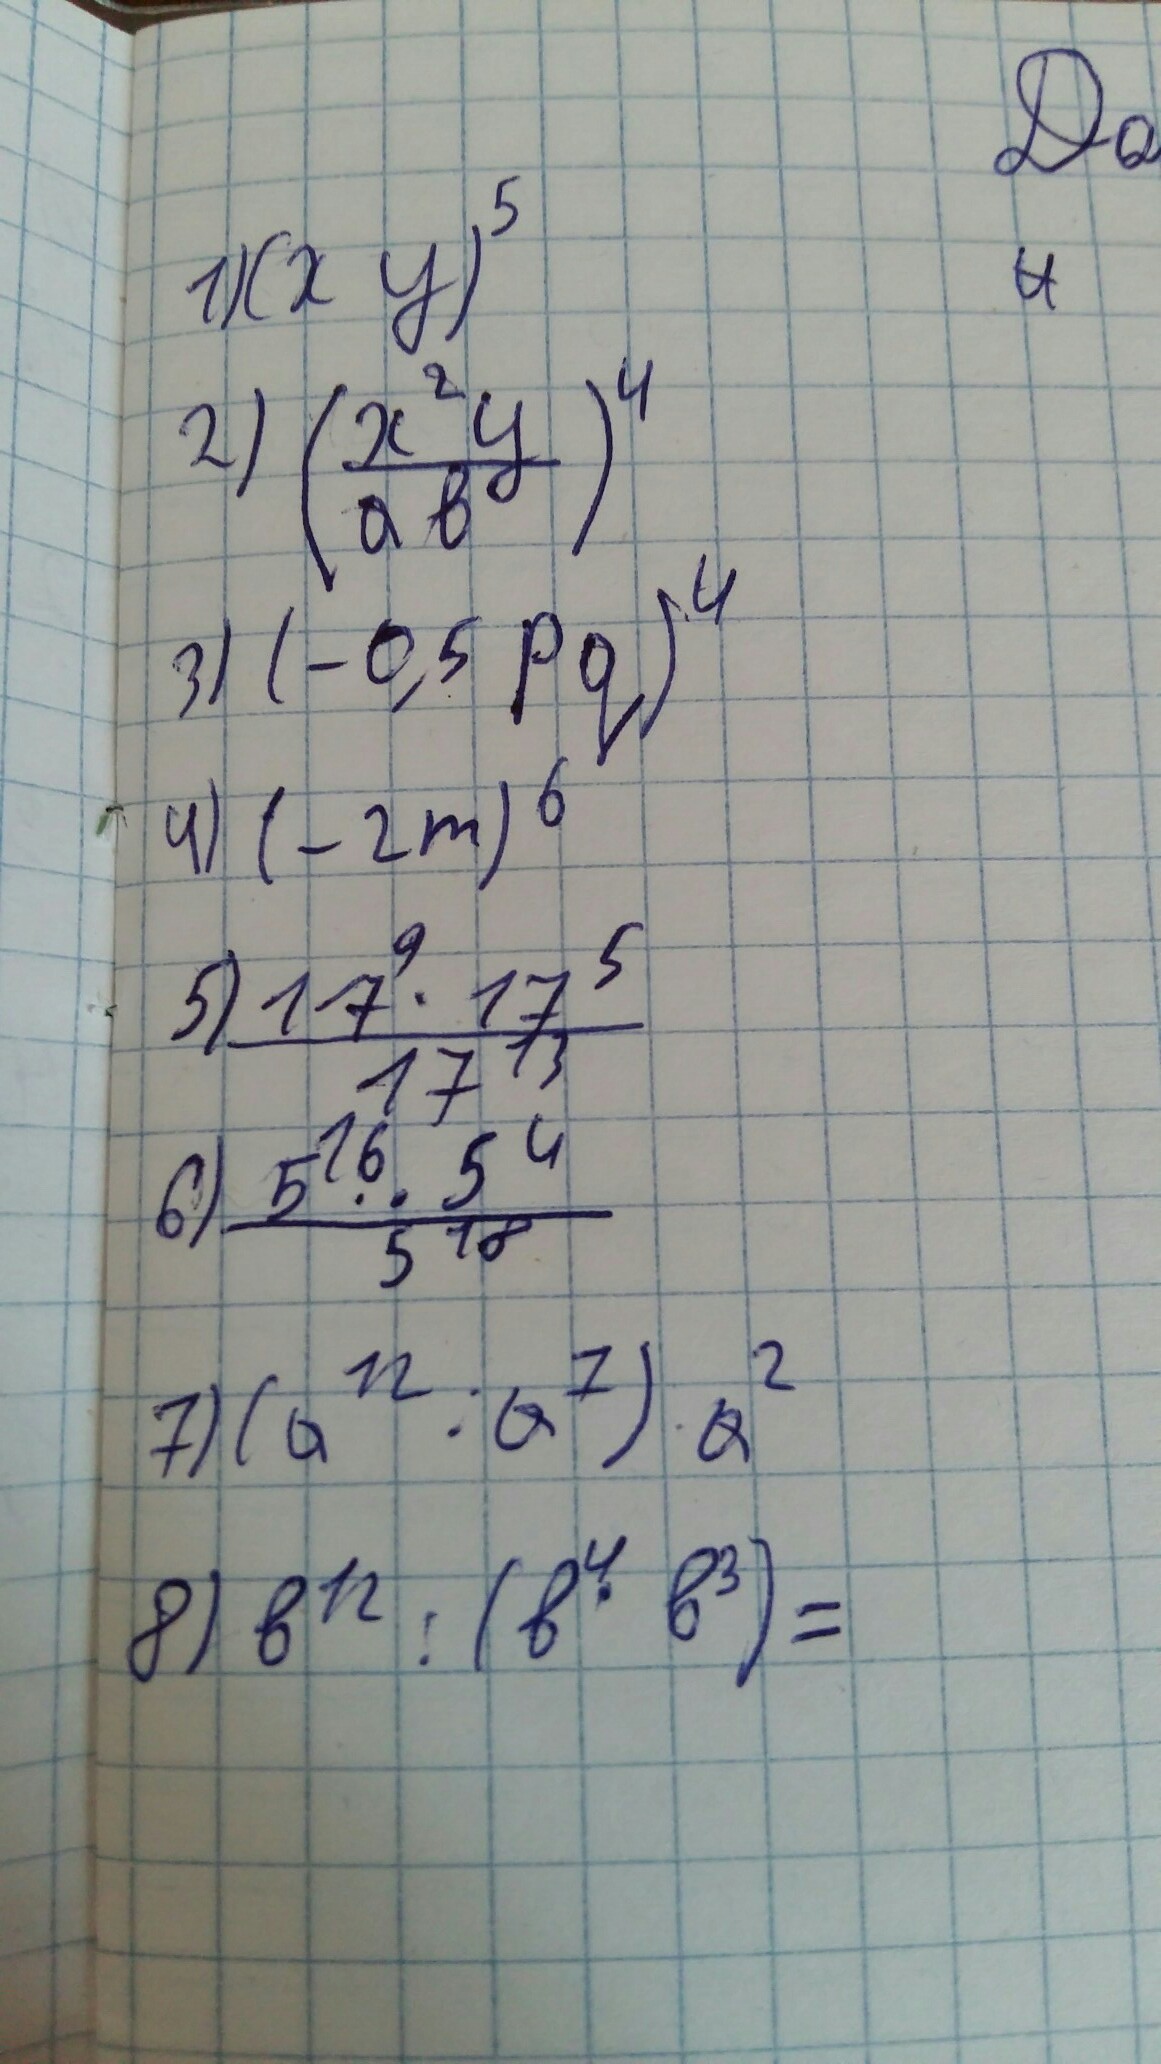 До
и
1) (x y)⁵
2) (x²y / aв)⁴
3) (-0,5 pq)⁴
4) (-2m)⁶
5) 17⁹ · 17⁵ / 17¹³
6) 5¹⁶ · 5⁴ / 5¹⁸
7) (a¹² : a⁷) · a²
8) в¹² : (в⁴ · в³) =